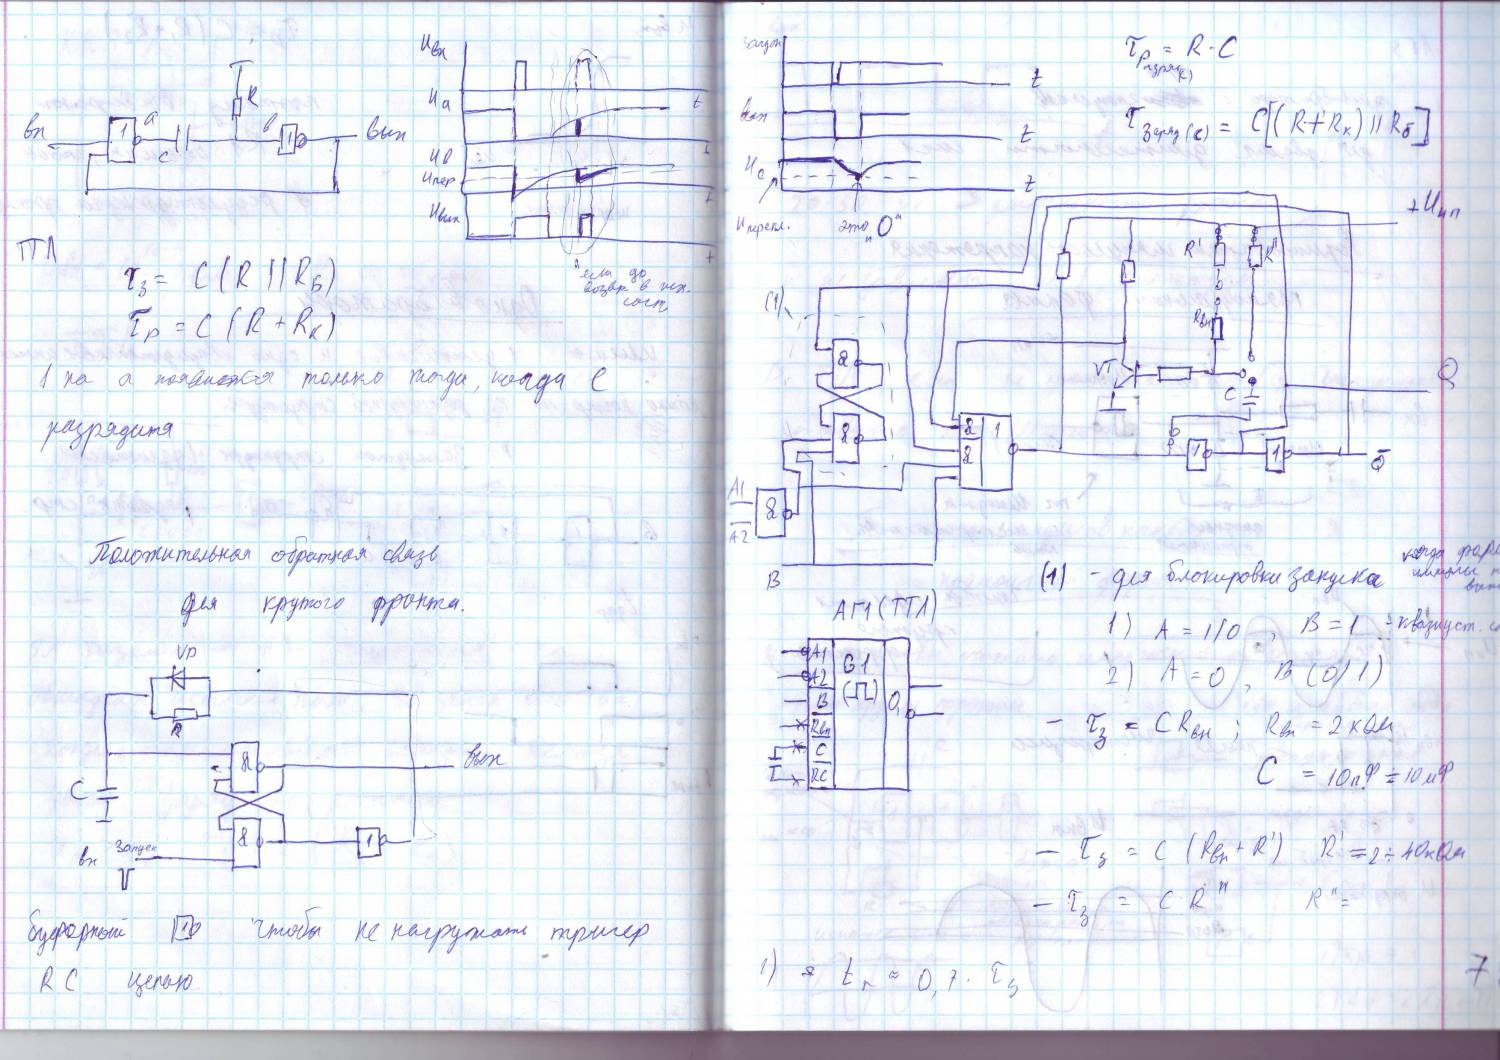 вх
1
а
C
R
в
1
вых
Uвх
t
Uа
t
Uв
Uпор
t
Uвых
t
если до
возвр в исх.
сост
ТТЛ
τз = C (R || Rб)
τр = C (R + Rк)
1 на а появится только тогда, когда C
разрядится
Положительная обратная связь
для крутого фронта.
VD
R
C
&
вых
&
1
вх Запуск
буферный 1 чтобы не нагружать тригер
RC цепью
Запуск
t
вых
t
Uс
t
Uперекл.
это "0"
τразряд(к) = R · C
τзаряд(к) = C[(R + Rк) || Rб]
+Uип
R'
R"
Rвн
(1)
&
&
VT
C
Q
&
&
1
1
1
Q̅
A1
A2
&
B
(1) - для блокировки запуска
когда
АГ1 (ТТЛ)
1) A = 1/0 , B = 1
2) A = 0 , B (0/1)
A1
A2
B
Rвн
C
RC
G1
Q
- τз = C Rвн ; Rвн = 2 кОм
C = 10пФ ÷ 10мФ
- τз = C (Rвн + R') R' = 2 ÷ 40кОм
- τз = C R" R" =
1) tп ≈ 0,7 · τз
7